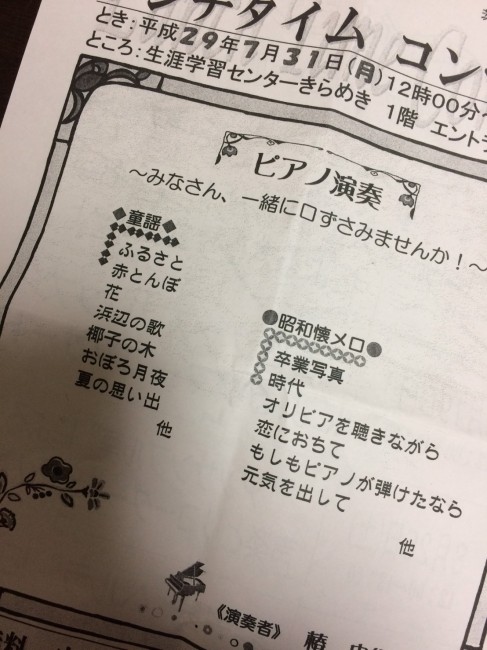 ンチタイム コン
とき：平成29年7月31日（月）12時00分
ところ：生涯学習センターきらめき 1階 エントラ
ピアノ演奏
～みなさん、一緒に口ずさみませんか！～
◆童謡◆
ふるさと
赤とんぼ
花
浜辺の歌
椰子の木
おぼろ月夜
夏の思い出
他
●昭和懐メロ●
卒業写真
時代
オリビアを聴きながら
恋におちて
もしもピアノが弾けたなら
元気を出して
他
《演奏者》 椿